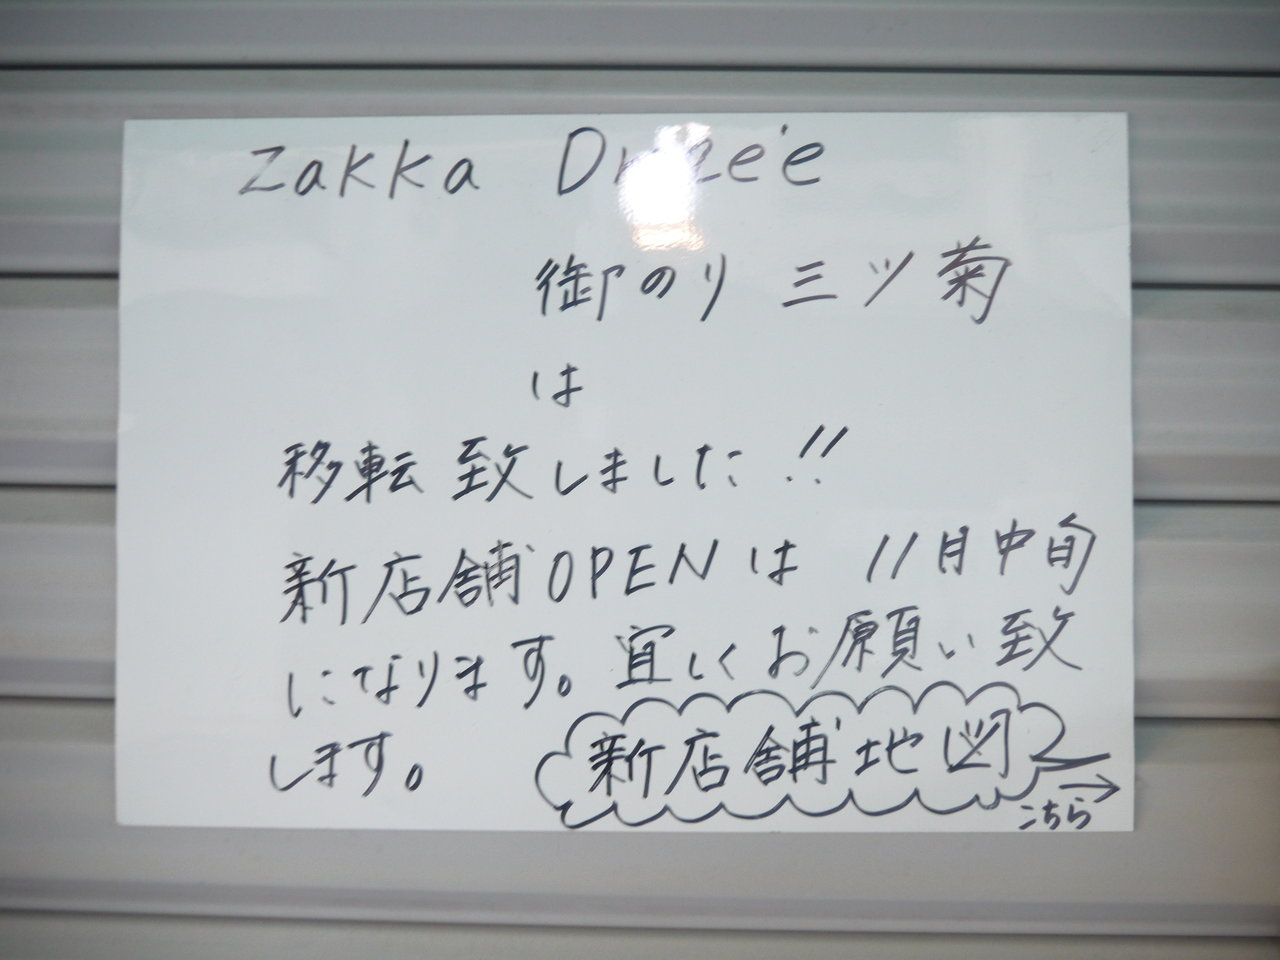 zakka
御のり 三ツ菊
は
移転致しました!!
新店舗OPENは 11月中旬
になります。宜しくお願い致
します。
新店舗地図
こちら→